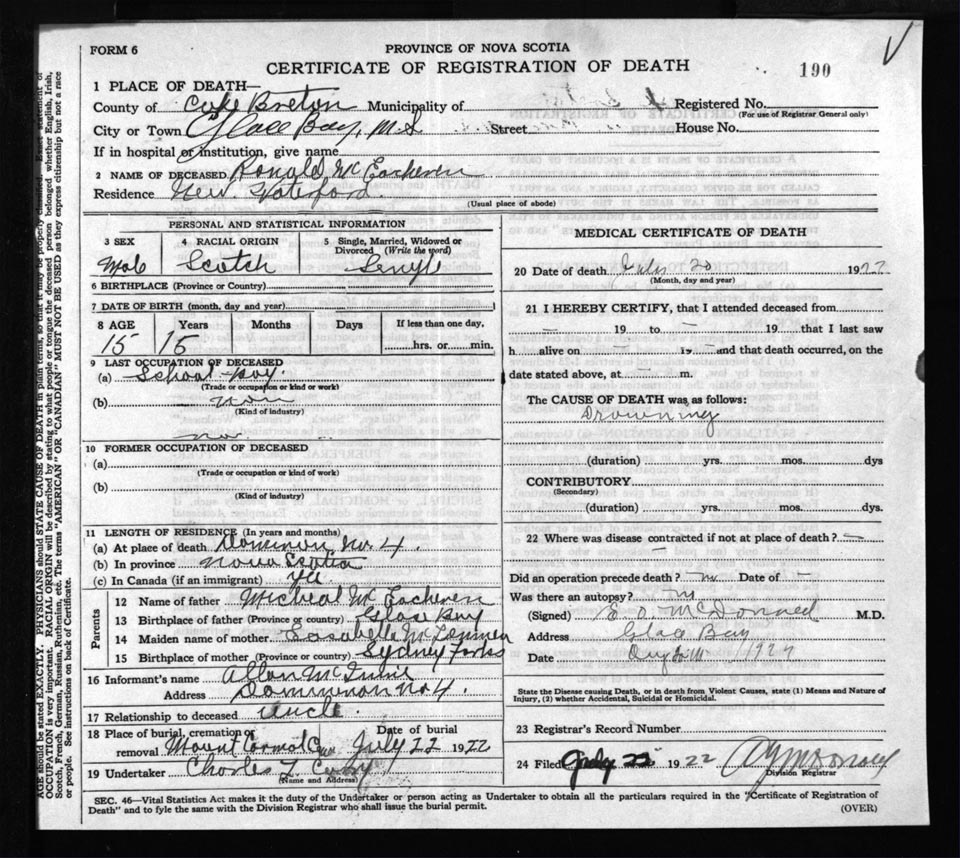 FORM 6
PROVINCE OF NOVA SCOTIA
CERTIFICATE OF REGISTRATION OF DEATH
190
1 PLACE OF DEATH—
County of Cape Breton Municipality of Registered No.
(For use of Registrar General only)
City or Town Glace Bay, N.S Street House No.
If in hospital or institution, give name
2 NAME OF DECEASED Ronald McEacheren
Residence New Waterford
(Usual place of abode)
PERSONAL AND STATISTICAL INFORMATION
3 SEX 4 RACIAL ORIGIN 5 Single, Married, Widowed or Divorced (Write the word)
Male Scotch Single
6 BIRTHPLACE (Province or Country)
7 DATE OF BIRTH (month, day and year)
8 AGE Years Months Days If less than one day,
15 15 hrs. or min.
9 LAST OCCUPATION OF DECEASED
(a) School-boy.
(Trade or occupation or kind or work)
(b) non
(Kind of industry)
no
10 FORMER OCCUPATION OF DECEASED
(a)
(Trade or occupation or kind of work)
(b)
(Kind of industry)
11 LENGTH OF RESIDENCE (In years and months)
(a) At place of death Dominion No. 4.
(b) In province Nova Scotia
(c) In Canada (if an immigrant)
Parents
12 Name of father Micheal McEacheren
13 Birthplace of father (Province or country) Glace Bay
14 Maiden name of mother
15 Birthplace of mother (Province or country) Sydney Forks
16 Informant's name Allan
Address Dominion No 4.
17 Relationship to deceased uncle.
18 Place of burial, cremation or removal Mount Carmel Cem Date of burial July 22 1922
19 Undertaker Charles L. Curry
(Name and Address)
MEDICAL CERTIFICATE OF DEATH
20 Date of death July 20 1922
(Month, day and year)
21 I HEREBY CERTIFY, that I attended deceased from
— 19 to — 19 that I last saw
h alive on 19 — and that death occurred, on the
date stated above, at — m.
The CAUSE OF DEATH was as follows:
Drowning
(duration) yrs. mos. dys
CONTRIBUTORY
(Secondary)
(duration) yrs. mos. dys
22 Where was disease contracted if not at place of death? —
—
Did an operation precede death? no Date of —
Was there an autopsy? no
(Signed) E. O. McDonald M.D.
Address Glace Bay
Date
State the Disease causing Death, or in death from Violent Causes, state (1) Means and Nature of
Injury, (2) whether Accidental, Suicidal or Homicidal.
23 Registrar's Record Number
24 Filed July 22 1922 McDonald
Division Registrar
SEC. 46—Vital Statistics Act makes it the duty of the Undertaker or person acting as Undertaker to obtain all the particulars required in the "Certificate of Registration of
Death" and to fyle the same with the Division Registrar who shall issue the burial permit.
(OVER)
AGE should be stated EXACTLY. PHYSICIANS should STATE CAUSE OF DEATH in plain terms, so that it may be properly classified. Exact statement of
OCCUPATION is very important. RACIAL ORIGIN will be described by stating to what people or tongue the deceased person belonged whether English, Irish,
Scotch, French, German, Russian, Ruthenian, etc. The terms "AMERICAN" OR "CANADIAN" MUST NOT BE USED as they express citizenship but not a race
or people. See instructions on back of Certificate.